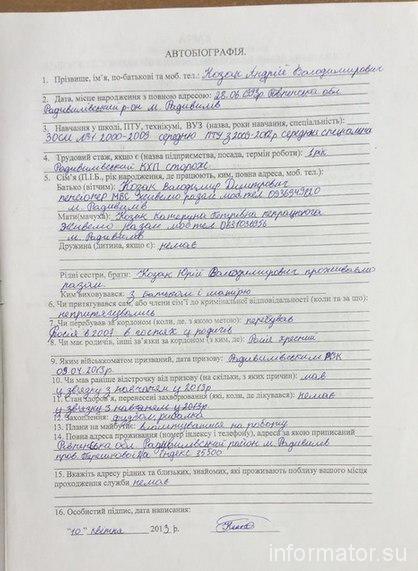 АВТОБІОГРАФІЯ.
1. Прізвище, ім'я, по-батькові та моб. тел.: Козак Андрій Володимирович
2. Дата, місце народження з повною адресою: 28.06.1993р Рівненська обл.
Радивилівський р-он м. Радивилів
3. Навчання у школі, ПТУ, технікумі, ВУЗ (назва, роки навчання, спеціальність):
ЗОСШ №1 2000-2009 середню ПТУ з 2009-2012р середня спеціальна
4. Трудовий стаж, якщо є (назва підприємства, посада, термін роботи): 1рік
Радивилівський КХП сторож
5. Сім'я (П.І.Б., рік народження, де працюють, ким, повна адреса, моб. тел.):
Батько (вітчим): Козак Володимир Дмитрович
пенсіонер МВС живемо разом моб тел
м. Радивилів
Мати(мачуха): Козак Катерина Петрівна непрацююча
живемо разом моб тел
м. Радивилів
Дружина (дитина, якщо є): немає
Рідні сестри, брати: Козак Юрій Володимирович проживаємо
разом.
Ким виховувався: З батьком і матірю
6. Чи притягувався сам, або члени сім'ї до кримінальної відповідальності (коли та за що):
непритягувались
7. Чи перебував за кордоном (коли, де, з якою метою): перебував
Росія в 2007 в гостях у родичів
8. Чи має родичів, інші зв'язки за кордоном (з ким, де): Росія хресний
9. Яким військкоматом призваний, дата призову: Радивилівським РВК
09.04.2013р.
10. Чи мав раніше відстрочку від призову (на скільки, з яких причин): мав
у звязку з навчанням у 2013р
11. Стан здоров'я, перенесені захворювання (які, коли, де лікувався): немає
у звязку з навчанням у 2013р
12. Захоплення: футбол рибалка
13. Плани на майбутнє: влаштуватися на роботу
14. Повна адреса проживання (номер індексу і телефону), адреса за якою приписаний
Рівненська обл. Радивилівський район м. Радивилів
пров. індекс 35500
15. Вкажіть адресу рідних та близьких, знайомих, які проживають поблизу вашого місця
проходження служби немає
16. Особистий підпис, дата написання:
"10" квітня 2013 р.
informator.su